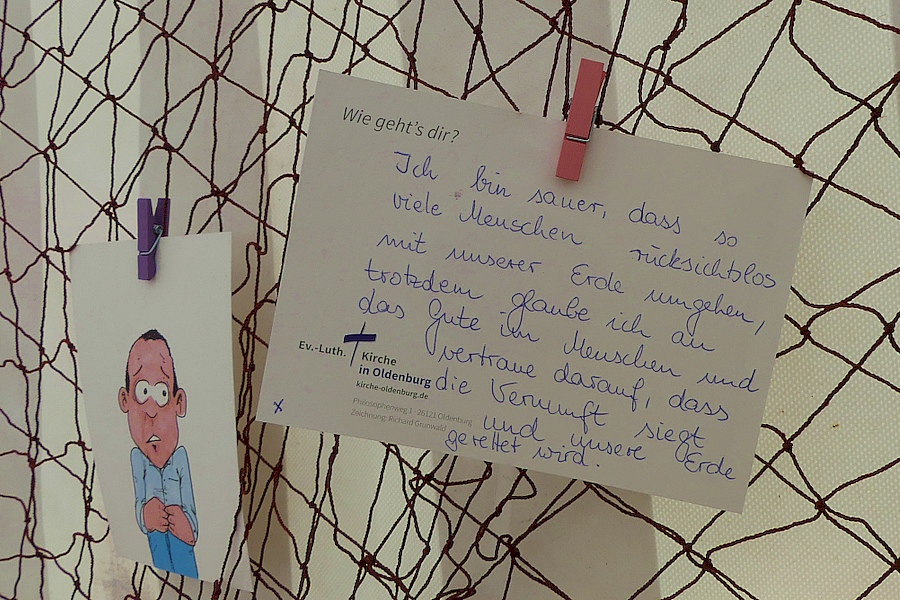 Wie geht's dir?
Ich bin sauer, dass so
viele Menschen rücksichtslos
mit unserer Erde umgehen,
trotzdem glaube ich an
das Gute im Menschen und
vertraue darauf, dass
die Vernunft siegt
und unsere Erde
gerettet wird.
Ev.-Luth. Kirche
in Oldenburg
kirche-oldenburg.de
Philosophenweg 1 · 26121 Oldenburg
Zeichnung: Richard Grunwald
x